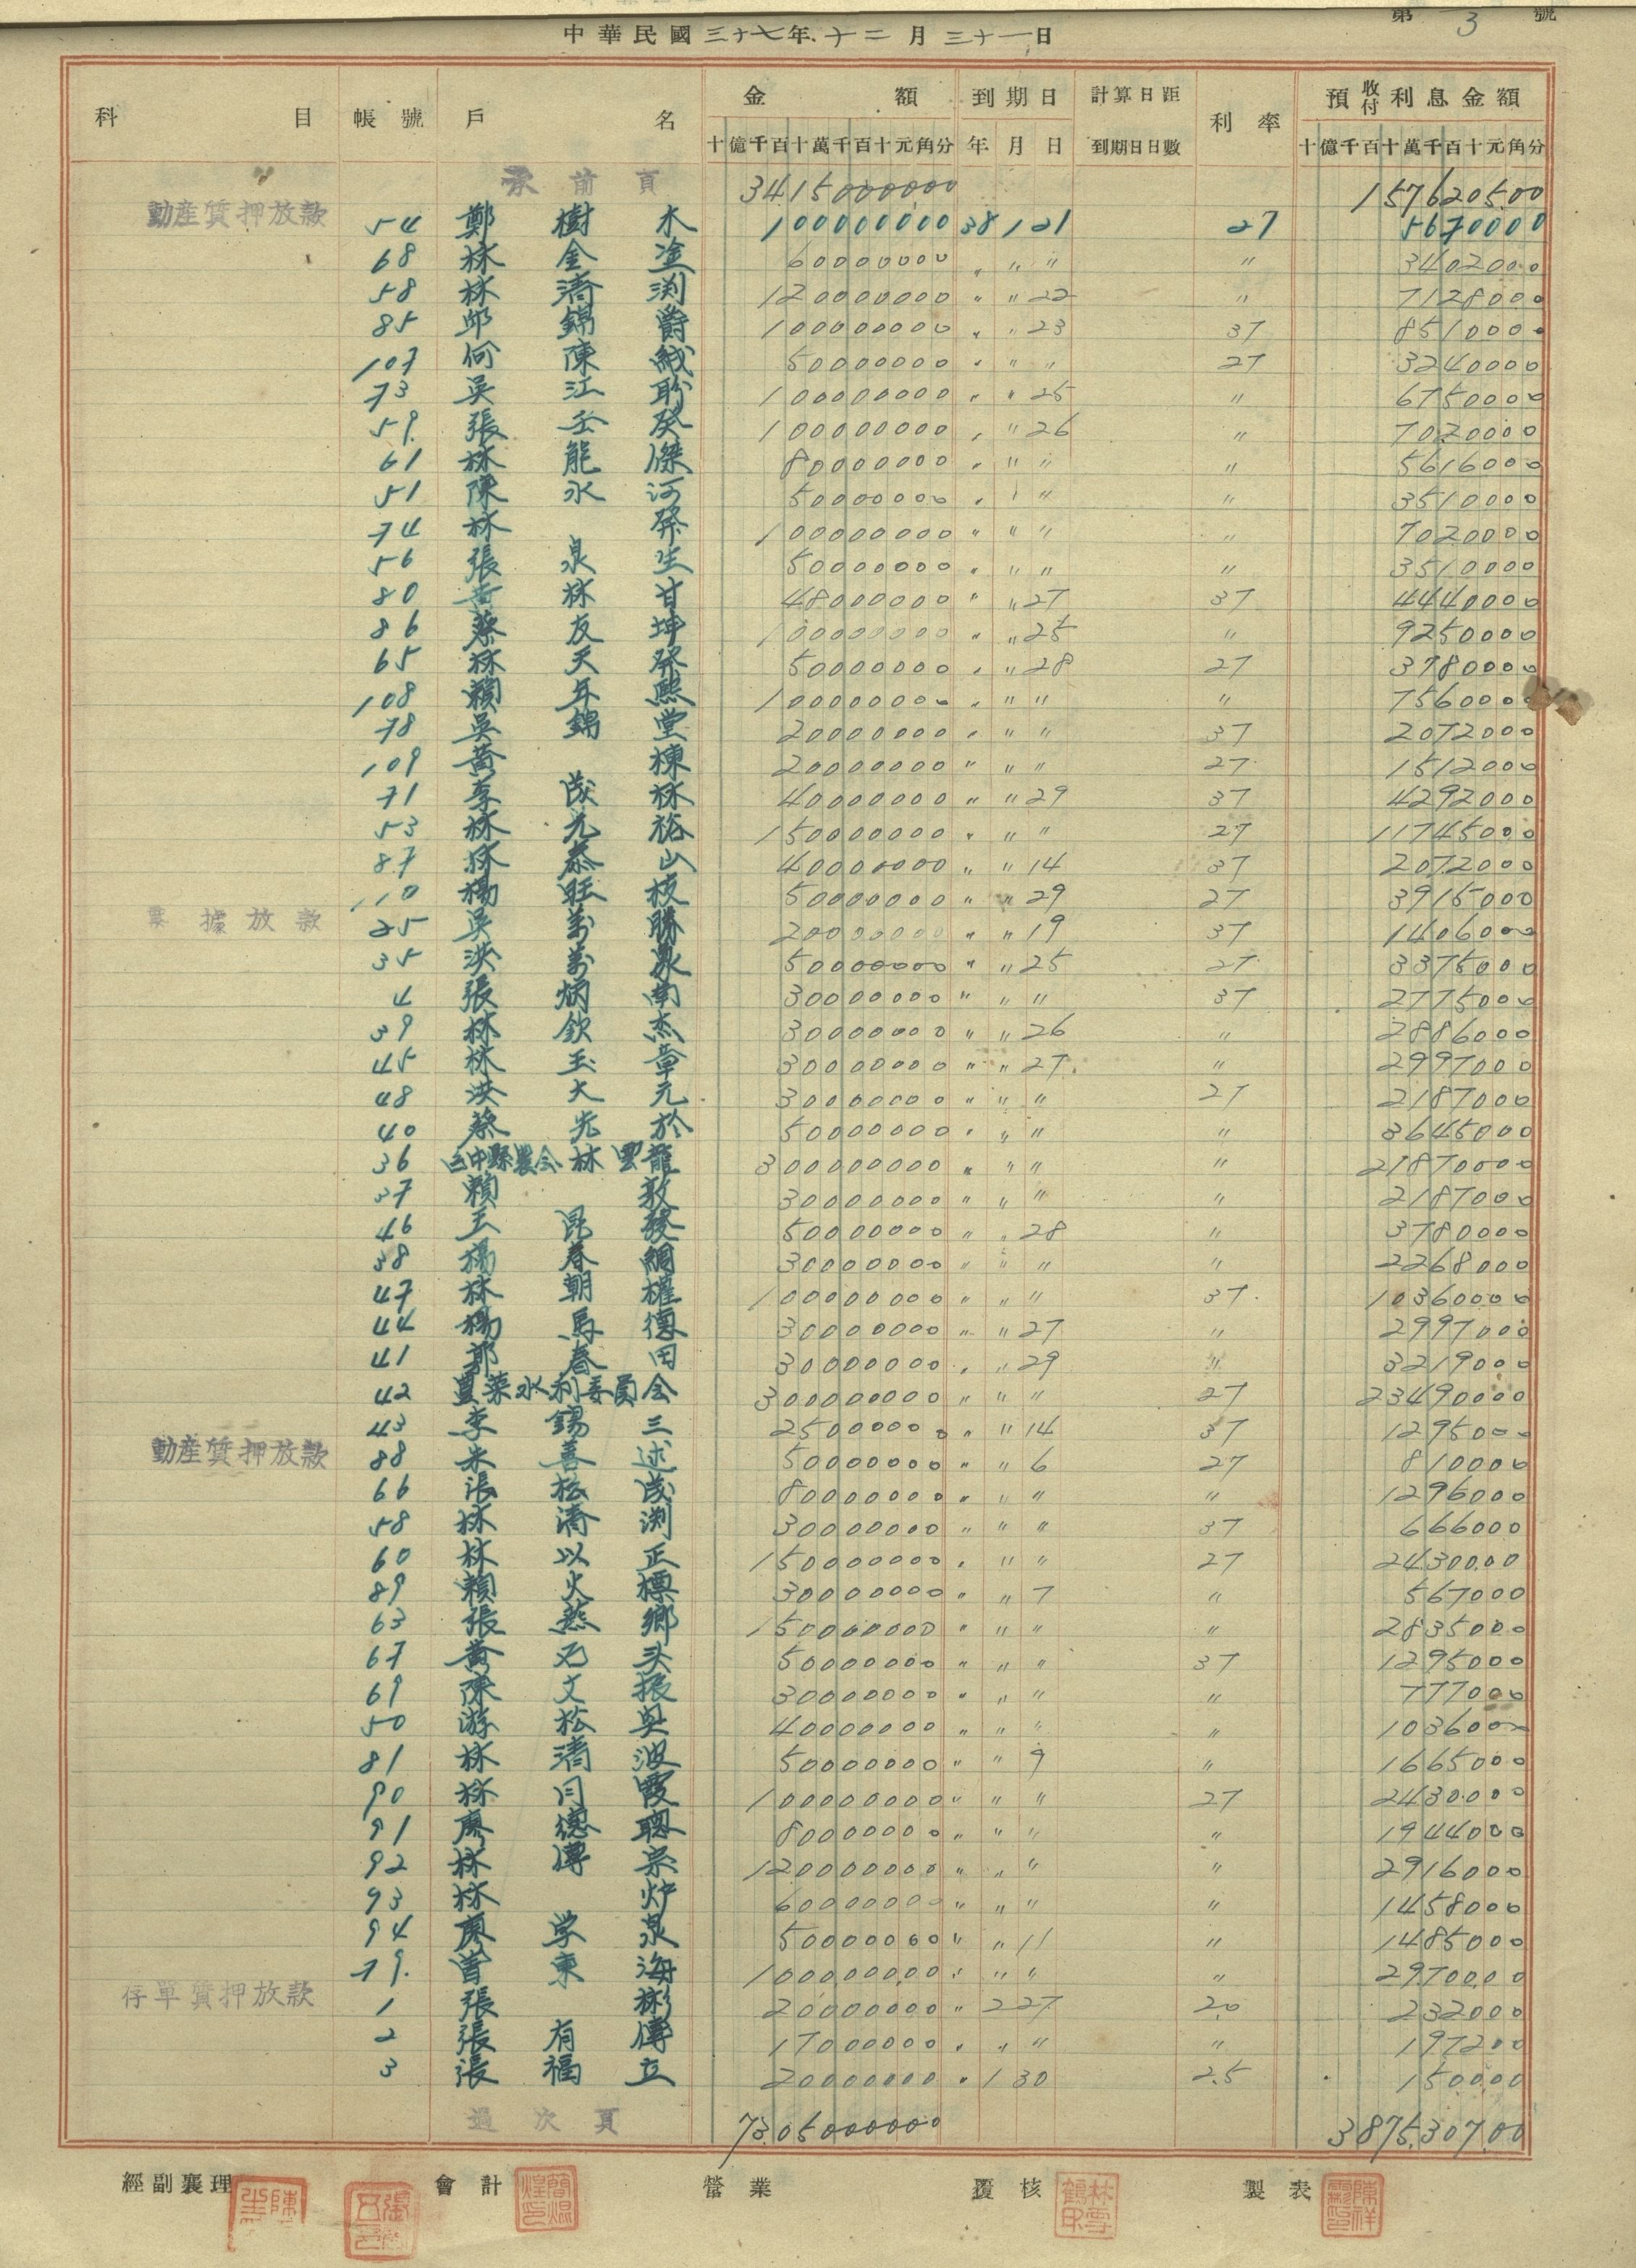 第 3 號
中華民國三十七年十二月三十一日
科目 帳號 戶名 金額 到期日 計算日距到期日日數 利率 預收付利息金額
十億千百十萬千百十元角分 年 月 日 十億千百十萬千百十元角分
承前頁 3415000000 157620500
動產質押放款 54 鄭樹木 100000000 38 1 21 27 5670000
68 林金塗 60000000 〃 〃 〃 〃 3402000
58 林濤渕 120000000 〃 〃 22 〃 7128000
85 邱錦爵 100000000 〃 〃 23 37 8510000
107 何陳絨 50000000 〃 〃 〃 27 3240000
73 吳江 100000000 〃 〃 25 〃 6750000
59 張壬癸 100000000 〃 〃 26 〃 7020000
61 林能傑 80000000 〃 〃 〃 〃 5616000
51 陳水河 50000000 〃 〃 〃 〃 3510000
74 林發 100000000 〃 〃 〃 〃 7020000
56 張泉生 50000000 〃 〃 〃 〃 3510000
80 黃林甘 48000000 〃 〃 27 37 4440000
86 蔡友坤 100000000 〃 〃 25 〃 9250000
65 林天發 50000000 〃 〃 28 27 3780000
108 賴年熙 100000000 〃 〃 〃 〃 7560000
78 吳錦堂 20000000 〃 〃 〃 37 2072000
109 黃棟 20000000 〃 〃 〃 27 1512000
71 李茂林 40000000 〃 〃 29 37 4292000
53 林元裕 150000000 〃 〃 〃 27 11745000
87 林恭山 40000000 〃 〃 14 37 2072000
110 楊旺枝 50000000 〃 〃 29 27 3915000
票據放款 25 吳萬勝 20000000 〃 〃 19 37 1406000
35 洪萬泉 50000000 〃 〃 25 27 3375000
4 張炳南 30000000 〃 〃 〃 37 2775000
39 林欽杰 30000000 〃 〃 26 〃 2886000
45 林玉章 30000000 〃 〃 27 〃 2997000
48 洪大元 30000000 〃 〃 〃 27 2187000
40 蔡光於 50000000 〃 〃 〃 〃 3645000
36 台中縣農会林雲龍 300000000 〃 〃 〃 〃 21870000
37 賴敦 30000000 〃 〃 〃 〃 2187000
46 王昆發 50000000 〃 〃 28 〃 3780000
38 楊春綢 30000000 〃 〃 〃 〃 2268000
47 林朝權 100000000 〃 〃 〃 37 10360000
44 楊馬德 30000000 〃 〃 27 〃 2997000
41 郭春田 30000000 〃 〃 29 〃 3219000
42 豐榮水利委員会 300000000 〃 〃 〃 27 23490000
43 李錫三 25000000 〃 〃 14 37 1295000
動產質押放款 88 朱善述 50000000 〃 〃 6 27 810000
66 張松茂 80000000 〃 〃 〃 〃 1296000
58 林濤渕 30000000 〃 〃 〃 37 666000
60 林以正 150000000 〃 〃 〃 27 2430000
89 賴火標 30000000 〃 〃 7 〃 567000
63 張燕鄉 150000000 〃 〃 〃 〃 2835000
67 黃头 50000000 〃 〃 〃 37 1295000
69 陳文振 30000000 〃 〃 〃 〃 777000
50 游松 40000000 〃 〃 〃 〃 1036000
81 林清波 50000000 〃 〃 9 〃 1665000
90 林月霞 100000000 〃 〃 〃 27 2430000
91 廖德聰 80000000 〃 〃 〃 〃 1944000
92 林傳宗 120000000 〃 〃 〃 〃 2916000
93 林炉 60000000 〃 〃 〃 〃 1458000
94 廖学泉 50000000 〃 〃 11 〃 1485000
79 曾東海 100000000 〃 〃 〃 〃 2970000
存單質押放款 1 張彬 20000000 〃 2 27 20 232000
2 張有傳 17000000 〃 〃 〃 〃 197200
3 張福立 20000000 〃 1 30 2.5 150000
過次頁 7305000000 387530700
經副襄理 會計 營業 覆核 製表